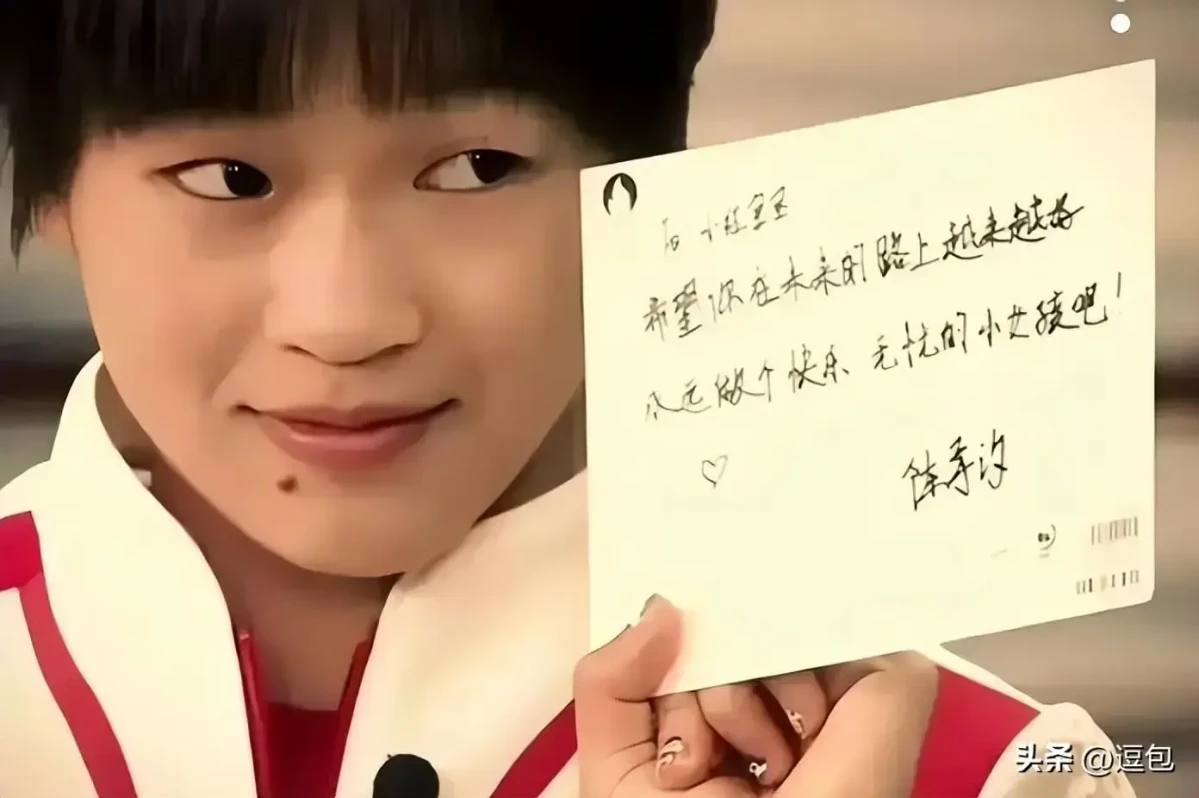 To 小红宝宝
希望你在未来的路上越来越好
永远做个快乐无忧的小女孩吧！
陈芋汐
头条 @逗包